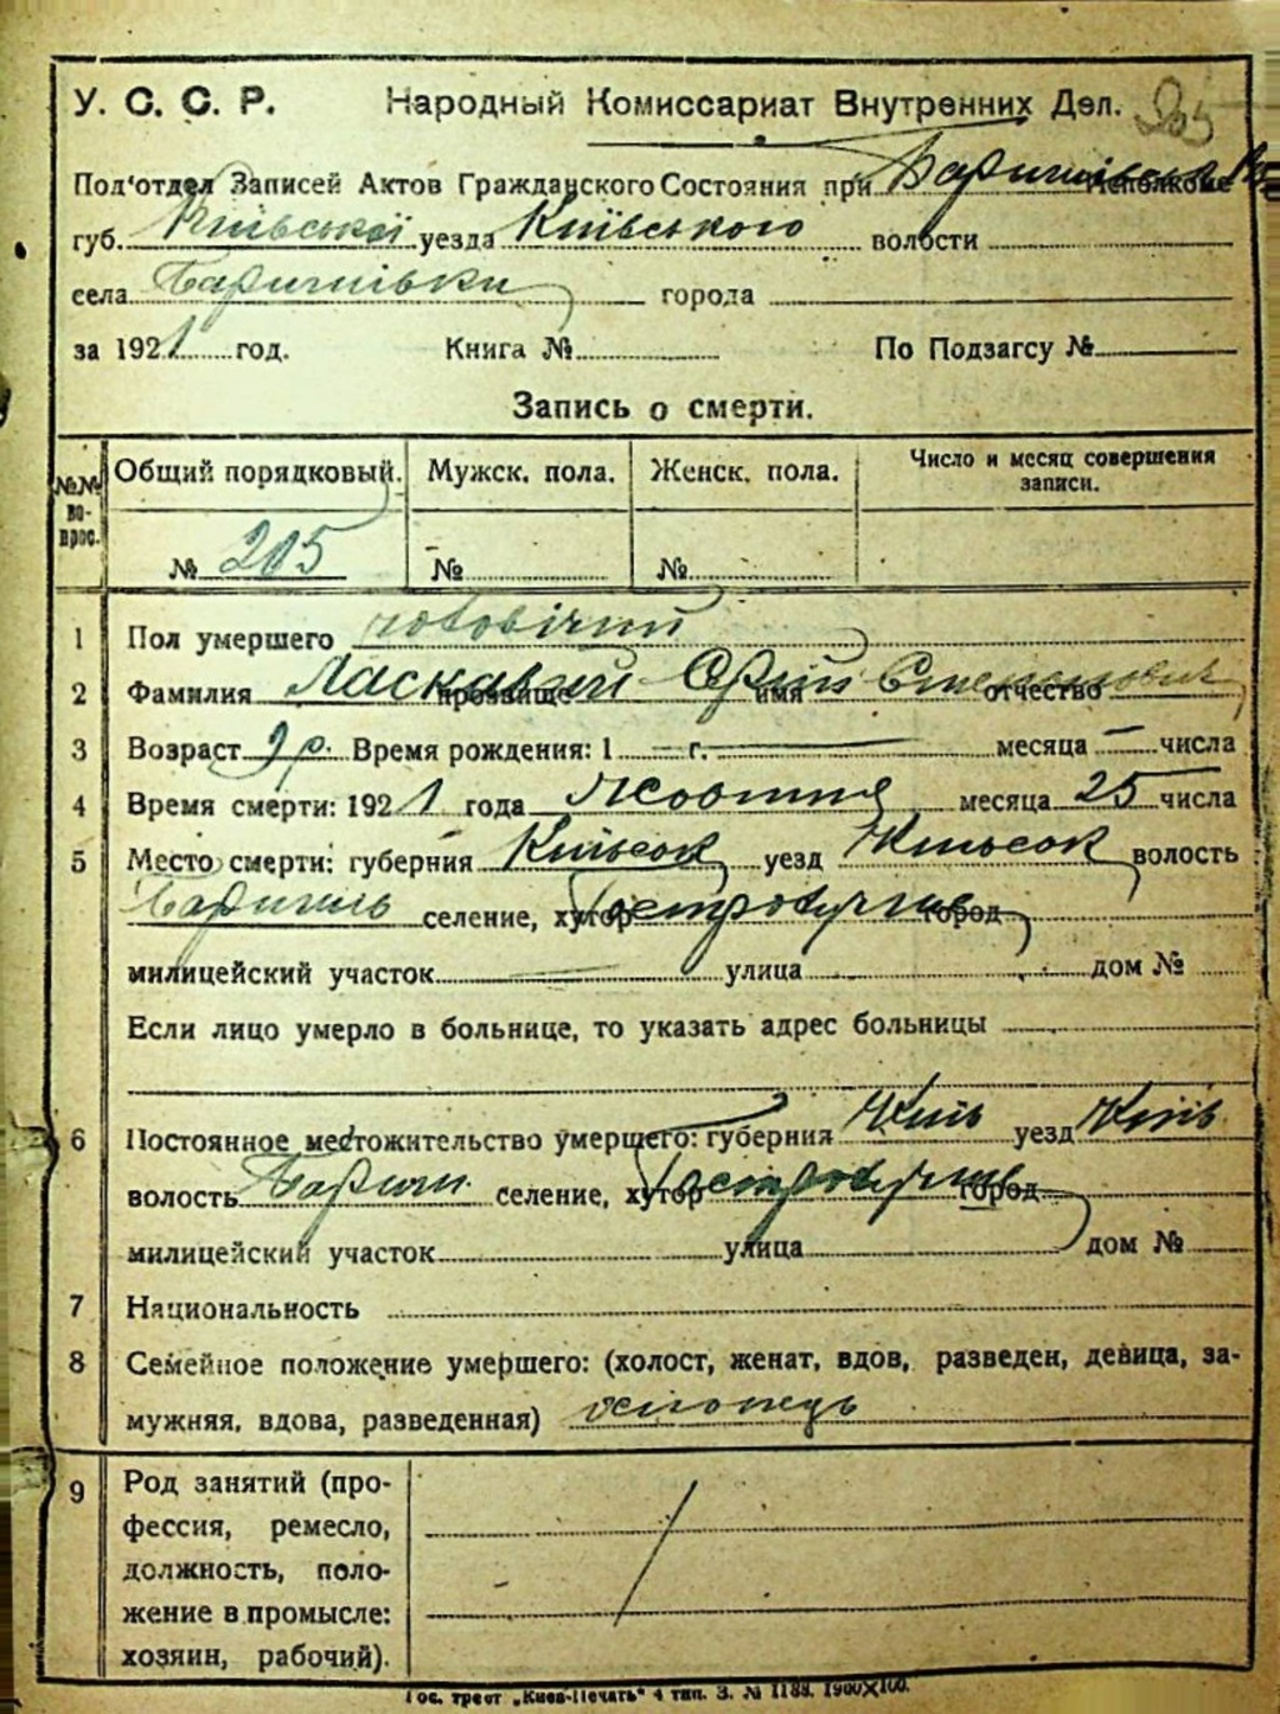 У. С. С. Р. Народный Комиссариат Внутренних Дел. 205
Под'отдел Записей Актов Гражданского Состояния при Исполкоме
губ. Київської уезда Київського волости
села Баришівки города
за 1921 год. Книга № По Подзагсу №
Запись о смерти.
№№ во-прос. Общий порядковый. Мужск. пола. Женск. пола. Число и месяц совершения записи.
№ 205 № №
1 Пол умершего чоловічий
2 Фамилия Ласкавий прозвище Сергій имя Степанович отчество
3 Возраст 9 р. Время рождения: 1 — г. — месяца — числа
4 Время смерти: 1921 года Жовтня месяца 25 числа
5 Место смерти: губерния Київськ уезд Київськ волость
Баришів селение, хутор город
милицейский участок — улица дом №
Если лицо умерло в больнице, то указать адрес больницы
6 Постоянное местожительство умершего: губерния Київ уезд Київ
волость Бариш. селение, хутор город
милицейский участок улица дом №
7 Национальность
8 Семейное положение умершего: (холост, женат, вдов, разведен, девица, за-
мужняя, вдова, разведенная) хлопець
9 Род занятий (про-
фессия, ремесло,
должность, поло-
жение в промысле:
хозяин, рабочий).
Гос. трест „Киев-Печать" 4 тип. З. № 1188. 1900×100.